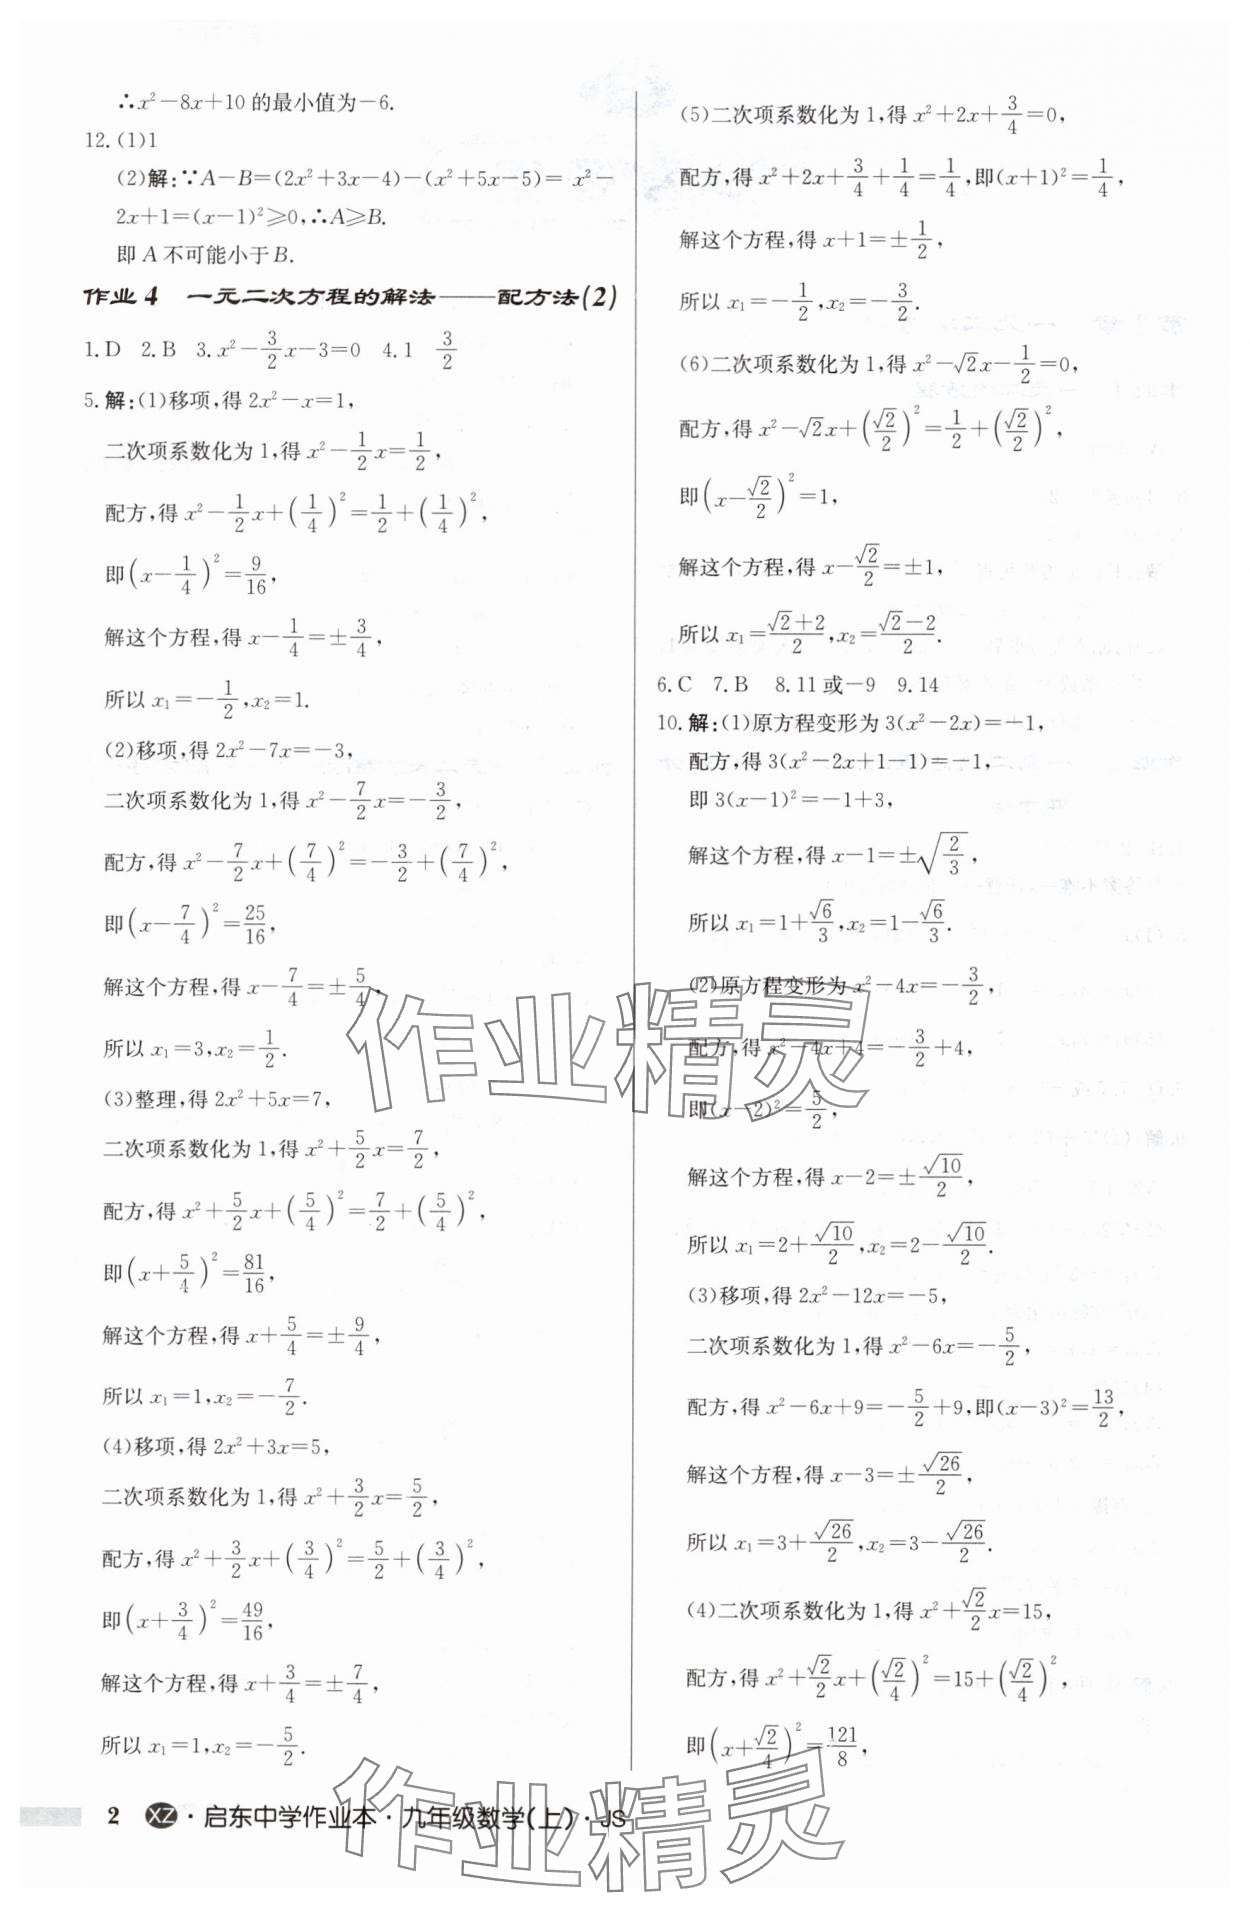 ∴x²－8x＋10的最小值为－6.
12.(1)1
(2)解:∵A－B＝(2x²＋3x－4)－(x²＋5x－5)＝ x²－
2x＋1＝(x－1)²≥0,∴A≥B.
即A不可能小于B.
作业4 一元二次方程的解法——配方法(2)
1.D 2.B 3.x²－3/2x－3＝0 4.1 3/2
5.解:(1)移项,得2x²－x＝1,
二次项系数化为1,得x²－1/2x＝1/2,
配方,得x²－1/2x＋(1/4)²＝1/2＋(1/4)²,
即(x－1/4)²＝9/16,
解这个方程,得x－1/4＝±3/4,
所以x₁＝－1/2,x₂＝1.
(2)移项,得2x²－7x＝－3,
二次项系数化为1,得x²－7/2x＝－3/2,
配方,得x²－7/2x＋(7/4)²＝－3/2＋(7/4)²,
即(x－7/4)²＝25/16,
解这个方程,得x－7/4＝±5/4,
所以x₁＝3,x₂＝1/2.
(3)整理,得2x²＋5x＝7,
二次项系数化为1,得x²＋5/2x＝7/2,
配方,得x²＋5/2x＋(5/4)²＝7/2＋(5/4)²,
即(x＋5/4)²＝81/16,
解这个方程,得x＋5/4＝±9/4,
所以x₁＝1,x₂＝－7/2.
(4)移项,得2x²＋3x＝5,
二次项系数化为1,得x²＋3/2x＝5/2,
配方,得x²＋3/2x＋(3/4)²＝5/2＋(3/4)²,
即(x＋3/4)²＝49/16,
解这个方程,得x＋3/4＝±7/4,
所以x₁＝1,x₂＝－5/2.
(5)二次项系数化为1,得x²＋2x＋3/4＝0,
配方,得x²＋2x＋3/4＋1/4＝1/4,即(x＋1)²＝1/4,
解这个方程,得x＋1＝±1/2,
所以x₁＝－1/2,x₂＝－3/2.
(6)二次项系数化为1,得x²－√2x－1/2＝0,
配方,得x²－√2x＋(√2/2)²＝1/2＋(√2/2)²,
即(x－√2/2)²＝1,
解这个方程,得x－√2/2＝±1,
所以x₁＝(√2＋2)/2,x₂＝(√2－2)/2.
6.C 7.B 8.11或－9 9.14
10.解:(1)原方程变形为3(x²－2x)＝－1,
配方,得3(x²－2x＋1－1)＝－1,
即3(x－1)²＝－1＋3,
解这个方程,得x－1＝±√(2/3),
所以x₁＝1＋√6/3,x₂＝1－√6/3.
(2)原方程变形为x²－4x＝－3/2,
配方,得x²－4x＋4＝－3/2＋4,
即(x－2)²＝5/2,
解这个方程,得x－2＝±√10/2,
所以x₁＝2＋√10/2,x₂＝2－√10/2.
(3)移项,得2x²－12x＝－5,
二次项系数化为1,得x²－6x＝－5/2,
配方,得x²－6x＋9＝－5/2＋9,即(x－3)²＝13/2,
解这个方程,得x－3＝±√26/2,
所以x₁＝3＋√26/2,x₂＝3－√26/2.
(4)二次项系数化为1,得x²＋√2/2x＝15,
配方,得x²＋√2/2x＋(√2/4)²＝15＋(√2/4)²,
即(x＋√2/4)²＝121/8,
作业精灵
作业精灵
2 XZ·启东中学作业本·九年级数学(上)·JS